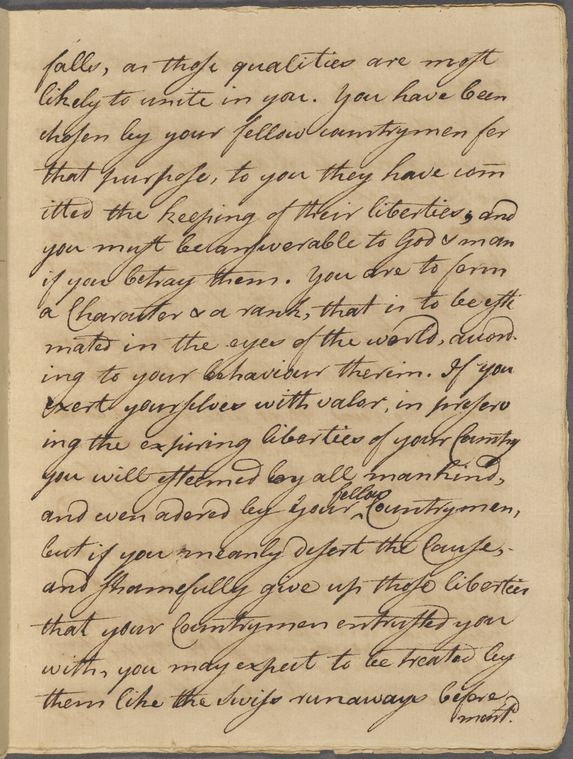 falls, as those qualities are most
likely to unite in you. You have been
chosen by your fellow countrymen for
that purpose, to you they have com
itted the keeping of their liberties, and
you must be answerable to God & man
if you betray them. You are to form
a Character & a rank, that is to be esti
mated in the eyes of the world, accord-
ing to your behaviour therin. If you
exert yourselves with valor, in preserv
ing the expiring liberties of your Country
you will esteemed by all mankind,
and even adored by your fellow Countrymen,
but if you meanly desert the Cause,
and shamefully give up those liberties
that your Countrymen entrusted you
with, you may expect to be treated by
them like the Swiss runaways before
ment.d